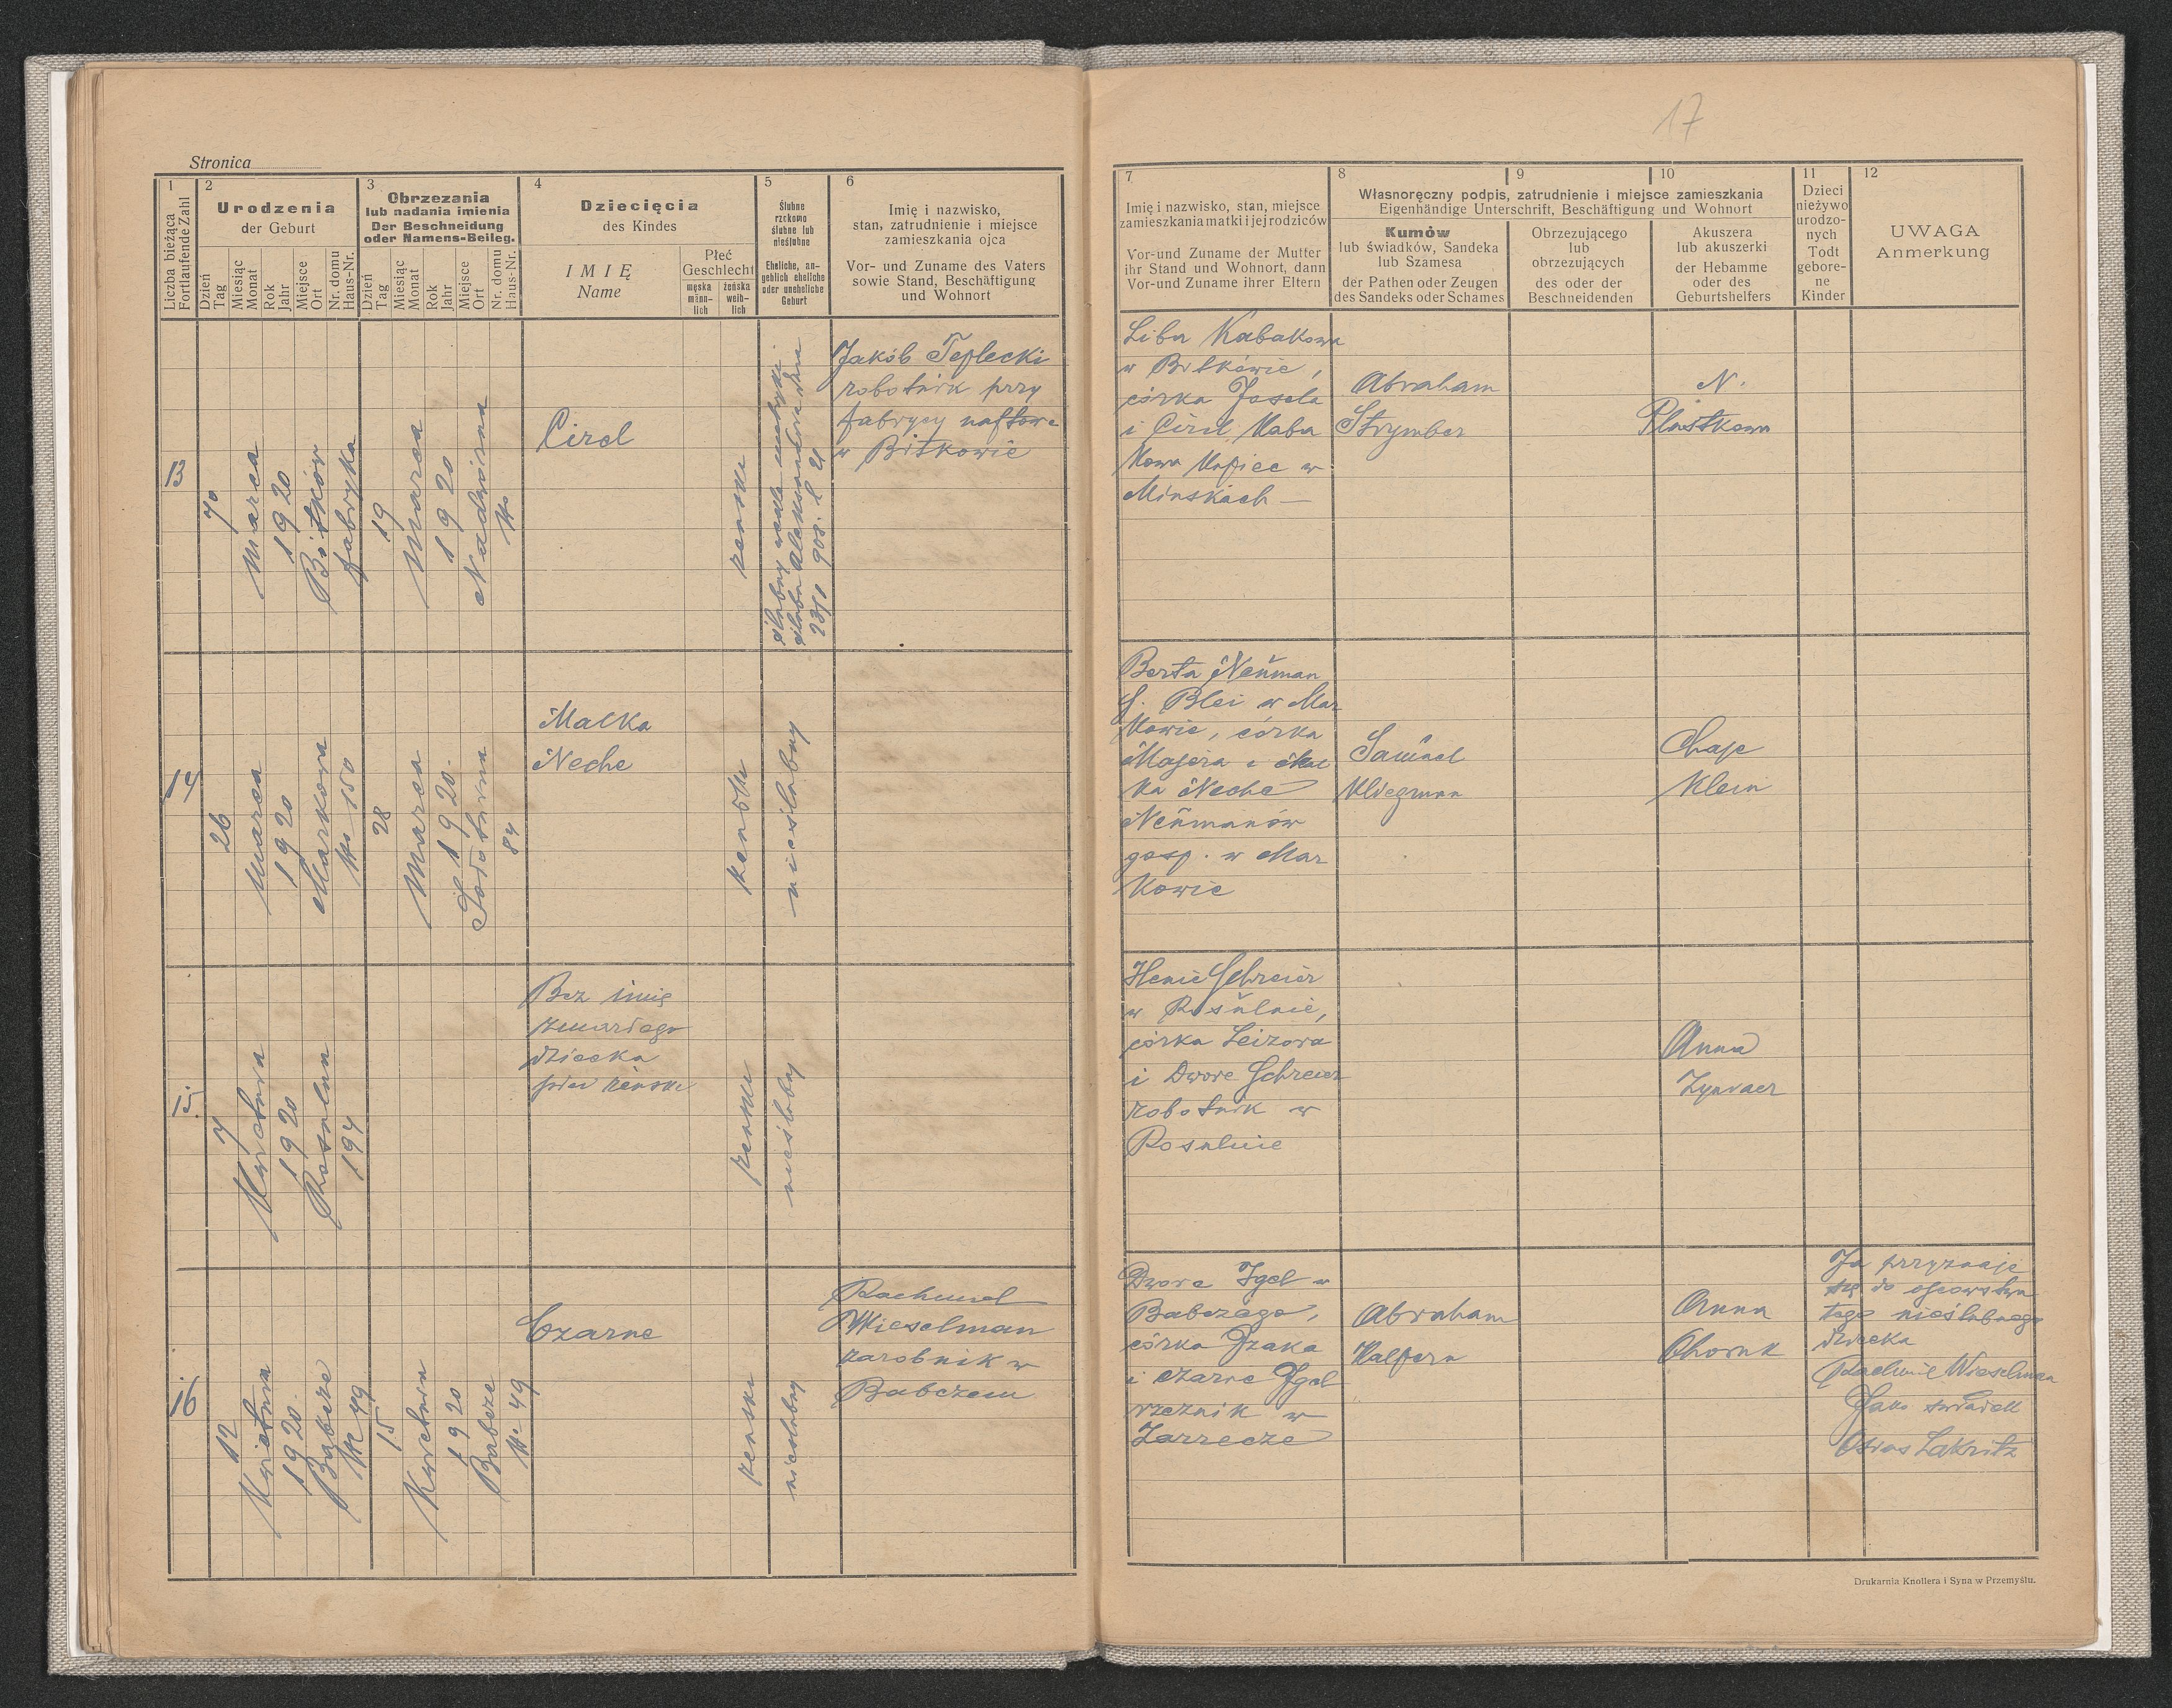 17
Stronica
1
Liczba bieżąca
Fortlaufende Zahl
2
Urodzenia
der Geburt
Dzień
Tag
Miesiąc
Monat
Rok
Jahr
Miejsce
Ort
Nr. domu
Haus-Nr.
3
Obrzezania
lub nadania imienia
Der Beschneidung
oder Namens-Beileg.
Dzień
Tag
Miesiąc
Monat
Rok
Jahr
Miejsce
Ort
Nr. domu
Haus-Nr.
4
Dziecięcia
des Kindes
IMIĘ
Name
Płeć
Geschlecht
męska
männ-
lich
żeńska
weib-
lich
5
Ślubne
rzekomo
ślubne lub
nieślubne
Eheliche, an-
geblich eheliche
oder uneheliche
Geburt
6
Imię i nazwisko,
stan, zatrudnienie i miejsce
zamieszkania ojca
Vor- und Zuname des Vaters
sowie Stand, Beschäftigung
und Wohnort
7
Imię i nazwisko, stan, miejsce
zamieszkania matki i jej rodziców
Vor-und Zuname der Mutter
ihr Stand und Wohnort, dann
Vor-und Zuname ihrer Eltern
8
9
10
Własnoręczny podpis, zatrudnienie i miejsce zamieszkania
Eigenhändige Unterschrift, Beschäftigung und Wohnort
Kumów
lub świadków, Sandeka
lub Szamesa
der Pathen oder Zeugen
des Sandeks oder Schames
Obrzezującego
lub
obrzezujących
des oder der
Beschneidenden
Akuszera
lub akuszerki
der Hebamme
oder des
Geburtshelfers
11
Dzieci
nieżywo
urodzo-
nych
Todt
gebore-
ne
Kinder
12
UWAGA
Anmerkung
13
7
Marca
1920
Bitków
fabryka
19
Marca
1920
Nadwórna
Cirel
żenska
ślubny wedle metryki
ślubu
Jakób Teplecki
robotnik przy
fabrycy naftowe
w Bitkowie
Liba Kabakowa
w Bitkówie,
córka Josela
i Cirel Kaba
kowa Kupiec w
Minskach —
Abraham
Strymber
N.
14
26
Marca
1920
Markowa
Nr 150
28
Marca
1920.
Sołotwina
84
Malka
Neche
żenska
nieślubny
Berta Neuman
Blei w Mar
kowie, córka
Majera i Mal
ka Neche
Neumanów
gosp. w Mar
kowie
Samuel
Chaje
Klein
15.
7
Kwietnia
1920
Rosulna
194
Bez imię
zmarłego
dziecka
żenska
nieślubny
Henie Schreier
w Rosulnie,
córka Leizora
i Dwore Schreier
robotnik w
Rosulnie
Anna
16
12
Kwietnia
1920.
Babcze
Nr 49
15
Kwietnia
1920
Babcze
Nr 49
Czarne
żenska
nieślubny
Rachmiel
Wieselman
zarobnik w
Babczem
Dwore Igel w
Babczego,
córka Izaka
i Czarne Igel
rzeznik w
Zarzecze
Abraham
Halpern
Anna
Ja przyznaje
się do ojcowstwa
tego nieślubnego
dziecka
Rachmiel Wieselman
Jako świadek
Osias Lakritz
Drukarnia Knollera i Syna w Przemyślu.